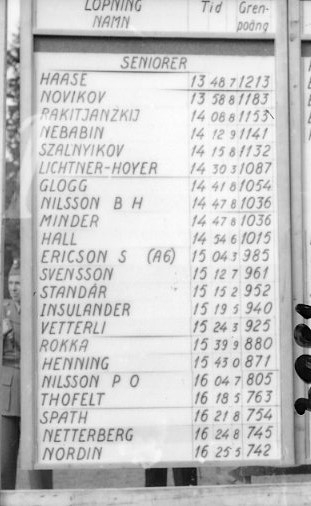 LÖPNING Tid Gren-
NAMN poäng
SENIORER
HAASE 13 48 7 1213
NOVIKOV 13 58 8 1183
RAKITJANZKIJ 14 08 8 1153
NEBABIN 14 12 9 1141
SZALNYIKOV 14 15 8 1132
LICHTNER-HOYER 14 30 3 1087
GLOGG 14 41 8 1054
NILSSON B H 14 47 8 1036
MINDER 14 47 8 1036
HALL 14 54 6 1015
ERICSON S (A6) 15 04 3 985
SVENSSON 15 12 7 961
STANDÁR 15 15 2 952
INSULANDER 15 19 5 940
VETTERLI 15 24 3 925
ROKKA 15 39 9 880
HENNING 15 43 0 871
NILSSON P O 16 04 7 805
THOFELT 16 18 5 763
SPATH 16 21 8 754
NETTERBERG 16 24 8 745
NORDIN 16 25 5 742